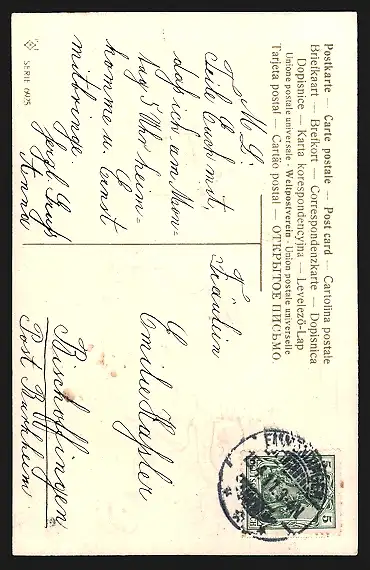 Postkarte — Carte postale — Post card — Cartolina postale
Briefkaart — Brefkort — Correspondenzkarte — Dopisnica
Dopisnice — Karta korespondencyjna — Levelező-Lap
Union postale universale - Weltpostverein - Union postale universelle
Tarjeta postal — Cartão postal — ОТКРЫТОЕ ПИСЬМО.
M. L.
Teile Euch mit,
daß ich am Mon-
tag 5 Uhr heim-
komme u. Ernst
mitbringe
Herzl. Gruß
Anna
SERIE 6925
Fräulein
Emilie Kaßler
Bischoffingen
Post Burkheim
5 5